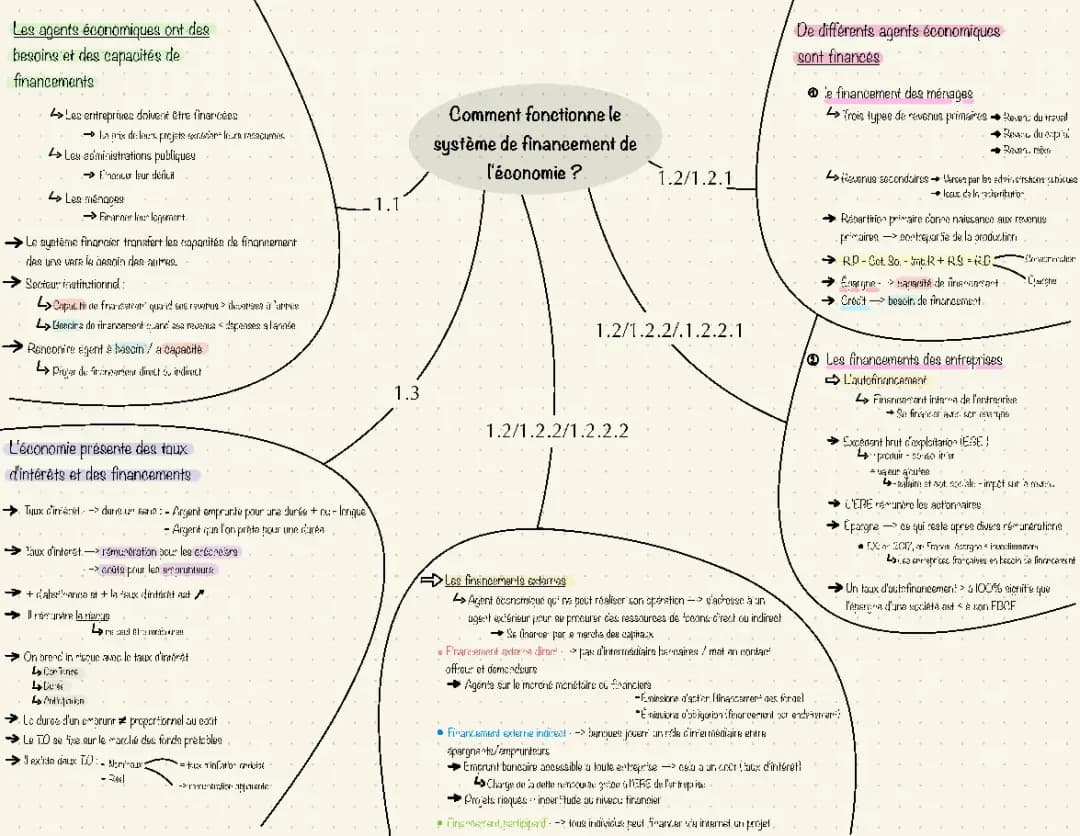 Comment fonctionne le
système de financement de
l'économie ?
1.1
1.2/1.2.1
1.2/1.2.2/.1.2.2.1
1.2/1.2.2/1.2.2.2
1.3
Les agents économiques ont des
besoins et des capacités de
financements
↳ Les entreprises doivent être financées
→ Le prix de leurs projets excédant leurs ressources
↳ Les administrations publiques
→ Financer leur déficit
↳ Les ménages
→ Financer leur logement
→ Le système financier transfert les capacités de financement
des uns vers le besoin des autres.
→ Secteur institutionnel :
↳ Capacité de financement quand ses revenus > dépenses à l'année
↳ Besoins de financement quand ses revenus < dépenses a l'année
→ Rencontre agent à besoin / a capacité
↳ financement direct ou indirect
De différents agents économiques
sont financés
① le financement des ménages
↳ Trois types de revenus primaires → Revenu du travail
→ Revenu du capital
→ Revenu mixte
↳ Revenus secondaires → Versés par les administrations publiques
→ de la redistribution
→ Répartition primaire donne naissance aux revenus
primaires → contrepartie de la production
→ R.P - Cot. So. - Imp.R + R.S = R.D
Consommation
Épargne
→ Épargne -> capacité de financement
→ Crédit → besoin de financement
② Les financements des entreprises
⇨ L'autofinancement
↳ Financement interne de l'entreprise
→ Se financer avec son épargne
→ Excédent brut d'exploitation (EBE)
↳ produit - conso inter
= valeur ajoutée
↳ - salaire et cot. sociale - impôt sur le revenu
→ L'EBE rémunère les actionnaires
→ Épargne → ce qui reste après divers rémunérations
• EX: en 2017, en France, épargne < investissement
↳ Les entreprises françaises en besoin de financement
→ Un taux d'autofinancement > à 100% signifie que
l'épargne d'une société est < à son FBCF
L'économie présente des taux
d'intérêts et des financements
→ Taux d'intérêt -> dans un sens : - Argent emprunté pour une durée + ou - longue
- Argent que l'on prête pour une durée
→ Taux d'intérêt → rémunération pour les créanciers
-> coûts pour les emprunteurs
→ + d'abstinance si + le taux d'intérêt est ↗
→ Il rémunère le risque
↳ ne peut être remboursé
→ On prend in risque avec le taux d'intérêt
↳ Confiance
↳ Durée
↳ Anticipation
→ La durée d'un emprunt ≠ proportionnel au coût
→ Le T.O se fixe sur le marché des fonds prêtables
→ Il existe deux T.O : - Nominaux
- Réel
⇨ Les financements externes
↳ Agent économique qui ne peut réaliser son opération → s'adresse à un
agent extérieur pour se procurer des ressources de façons direct ou indirect
→ Se financer par le marché des capitaux
• Financement externe direct -> pas d'intermédiaire bancaires / met en contact
offreur et demandeurs
→ Agents sur le marché monétaire ou financiers
- Émissions d'action (financement des fonds)
* Émissions d'obligation (financement par endettement)
• Financement externe indirect -> banques jouent un rôle d'intermédiaire entre
épargnants/emprunteurs
→ Emprunt bancaire accessible a toute entreprise → cela a un coût (taux d'intérêt)
↳ Charge de la dette remboursé grâce à l'EBE de l'entreprise
→ Projets risqués : incertitude au niveau financier
• Financement participatif -> tous individus peut financer via internet un projet